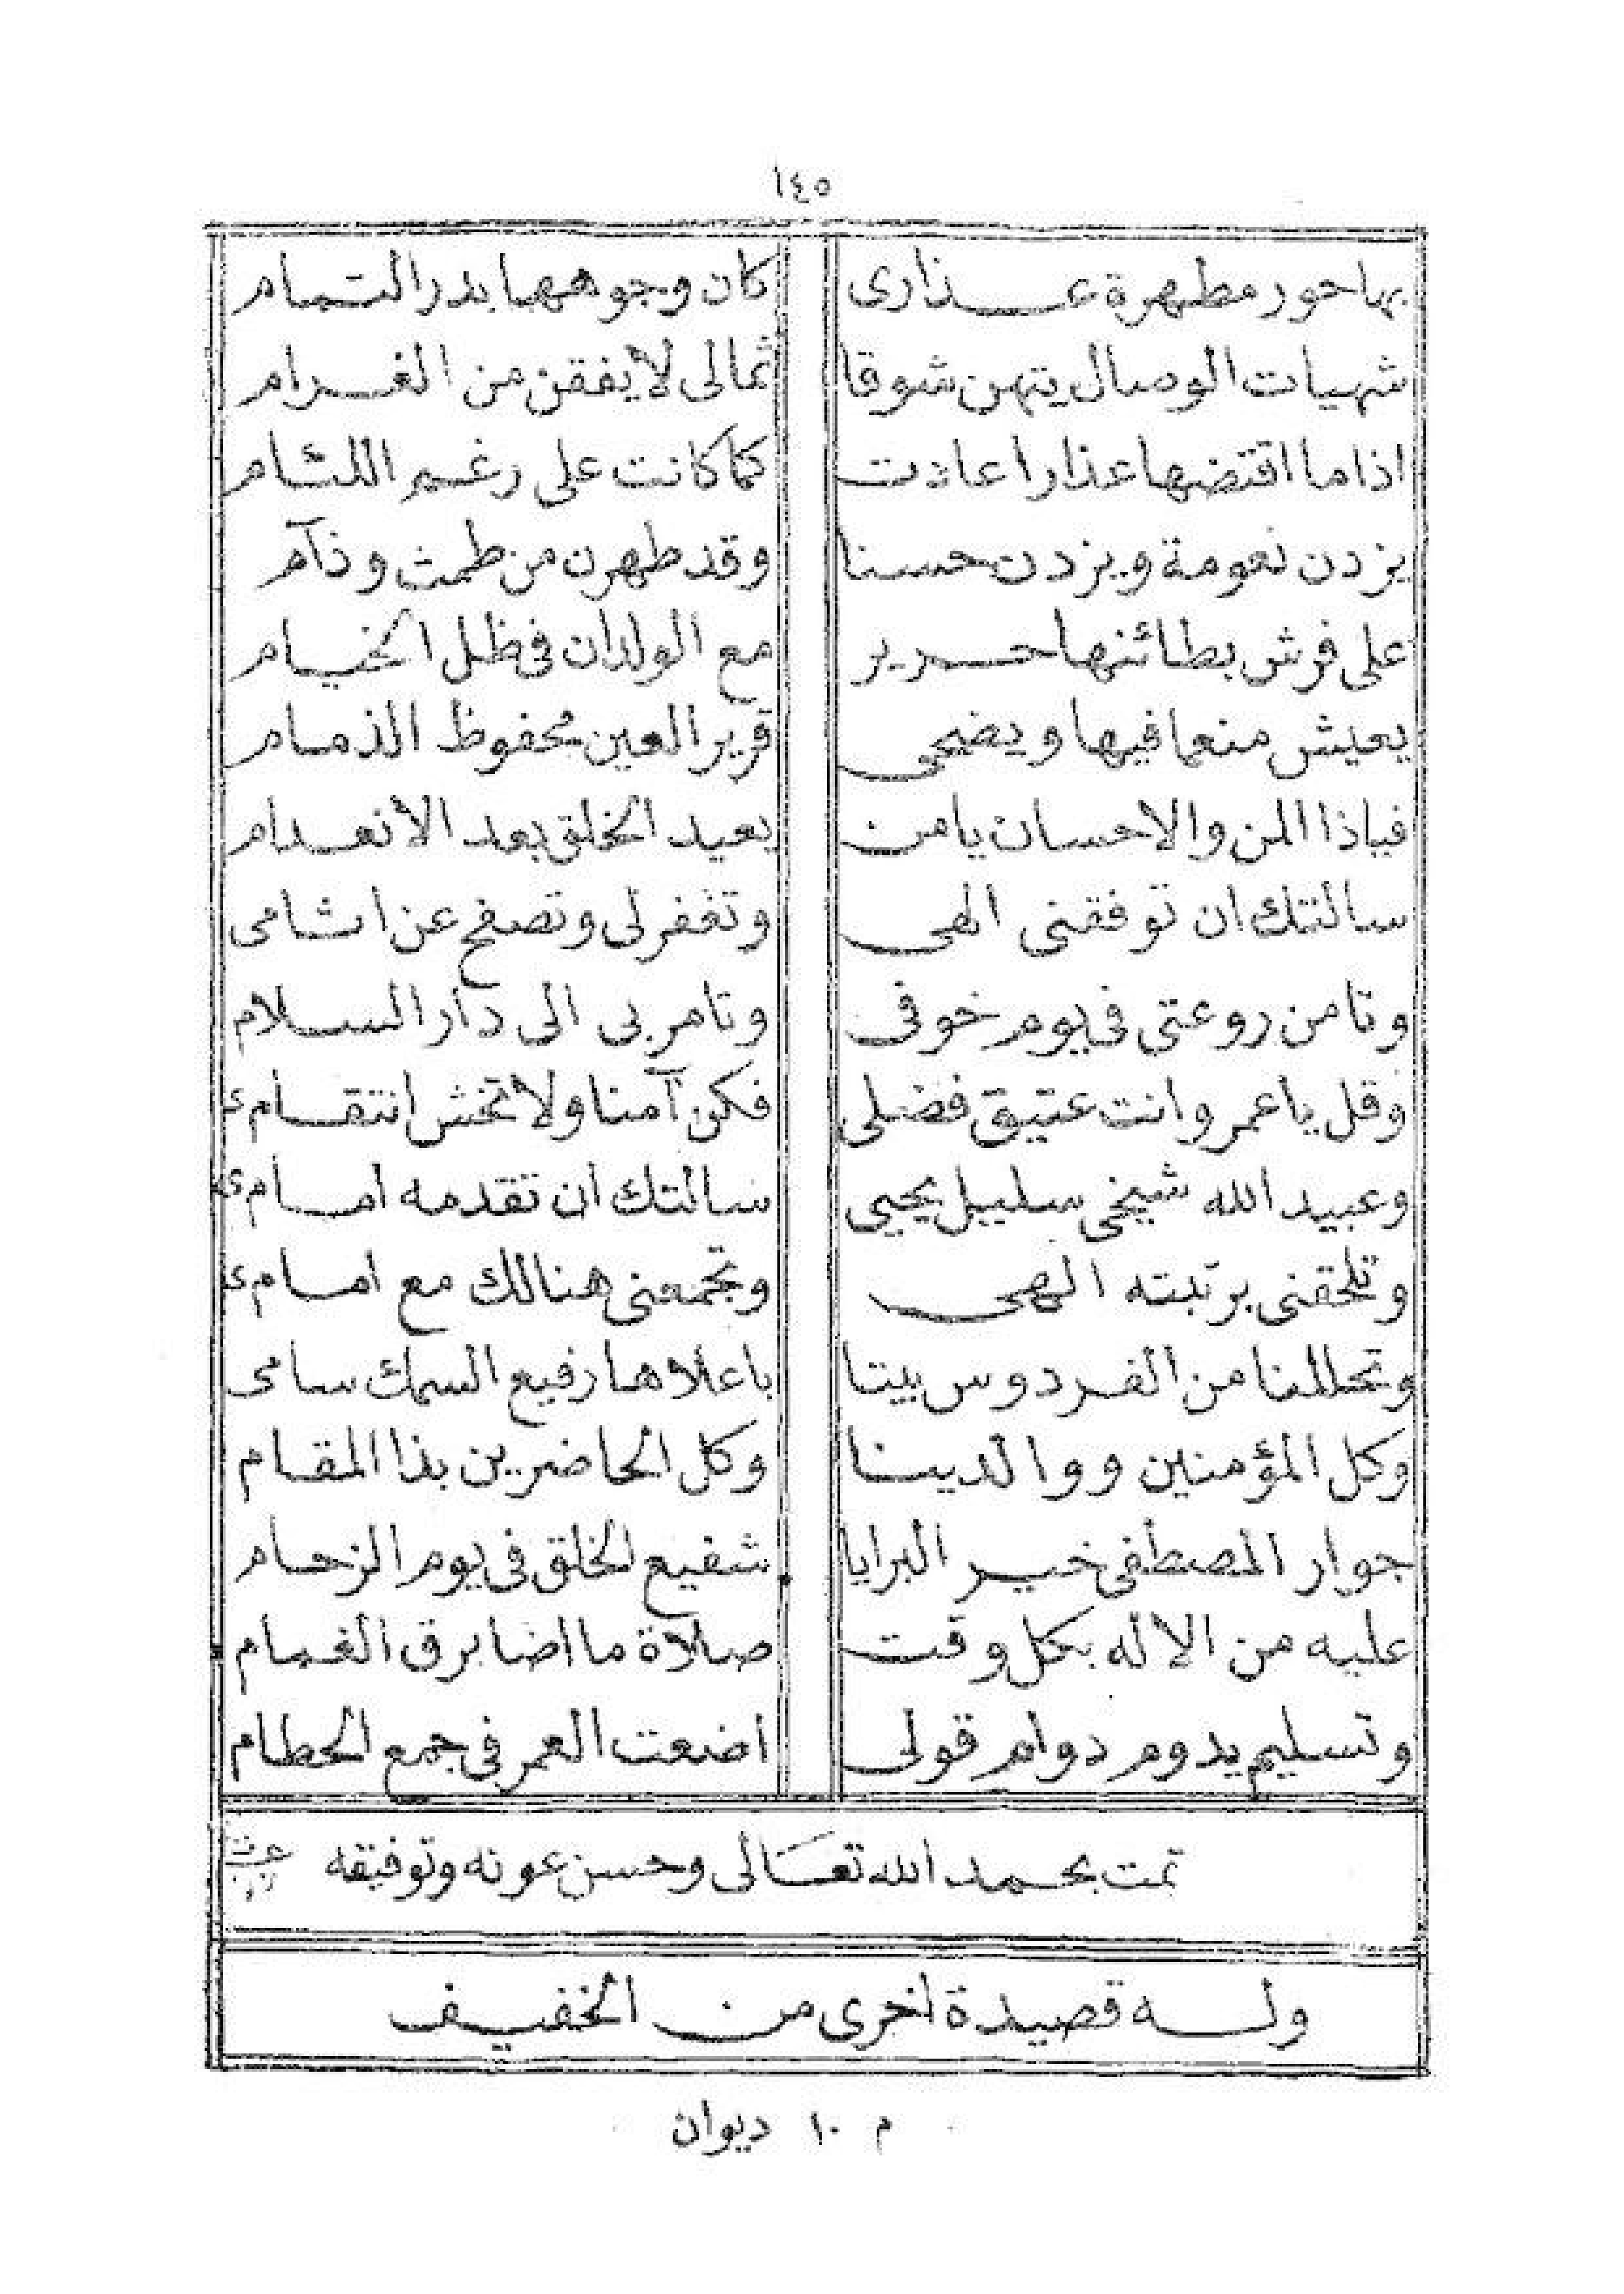 ١٤٥
بها حور مطهرة عـــذارى كان وجوهها بدر التمام
شهيات الوصال يتهن شوقا ثمالى لا يفقن من الغرام
اذا ما اقتضها عذارا عادت كما كانت على رغم اللثام
يزدن نعومة ويزدن حسنا وقد طهرن من طمث وذآم
على فرش بطائنها حرير مع الولدان فى ظل الخيام
يعيش منعما فيها ويضحى قرير العين محفوظ الذمام
فياذا المن والاحسان يامن يعيد الخلق بعد الانعدام
سالتك ان توفقنى الهى وتغفر لى وتصفح عن اثامى
وتامن روعتى فى يوم خوفى وتامر بى الى دار السلام
وقل يا عمر وانت عتيق فضلى فكن آمنا ولا تخش انتقامى
وعبيد الله شيخى سليل يحيى سالتك ان تقدمه امامى
وتلحقنى برتبته الهى وتجمعنى هنالك مع امامى
وتحللنا من الفردوس بيتا باعلاها رفيع السمك سامى
وكل المؤمنين ووالدينا وكل الحاضرين بذا المقام
جوار المصطفى خير البرايا شفيع الخلق فى يوم الزحام
عليه من الاله بكل وقت صلاة ما اضا برق الغمام
وتسليم يدوم دوام قولى اضعت العمر فى جمع الحطام
تمت بحمد الله تعالى وحسن عونه وتوفيقه
وله قصيدة اخرى من الخفيف
م ١٠ ديوان